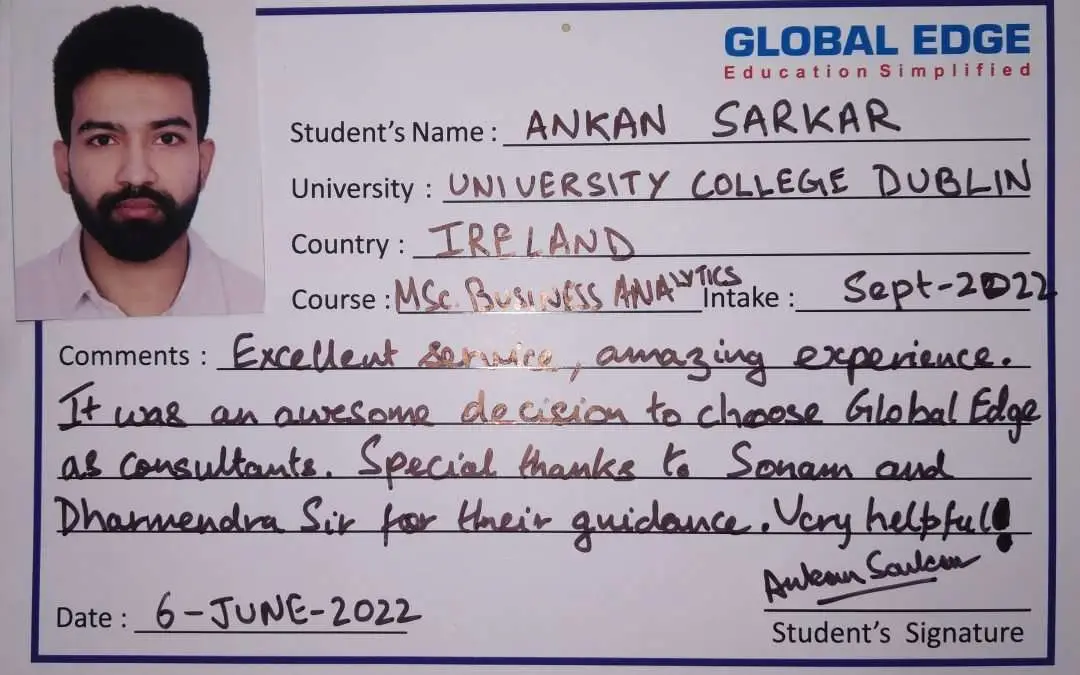 GLOBAL EDGE
Education Simplified
Student's Name : ANKAN SARKAR
University : UNIVERSITY COLLEGE DUBLIN
Country : IRELAND
Course : MSc. BUSINESS ANALYTICS Intake : Sept-2022
Comments : Excellent service, amazing experience.
It was an awesome decision to choose Global Edge
as consultants. Special thanks to Sonam and
Dharmendra Sir for their guidance. Very helpful!
Ankan Sarkar
Date : 6-JUNE-2022
Student's Signature